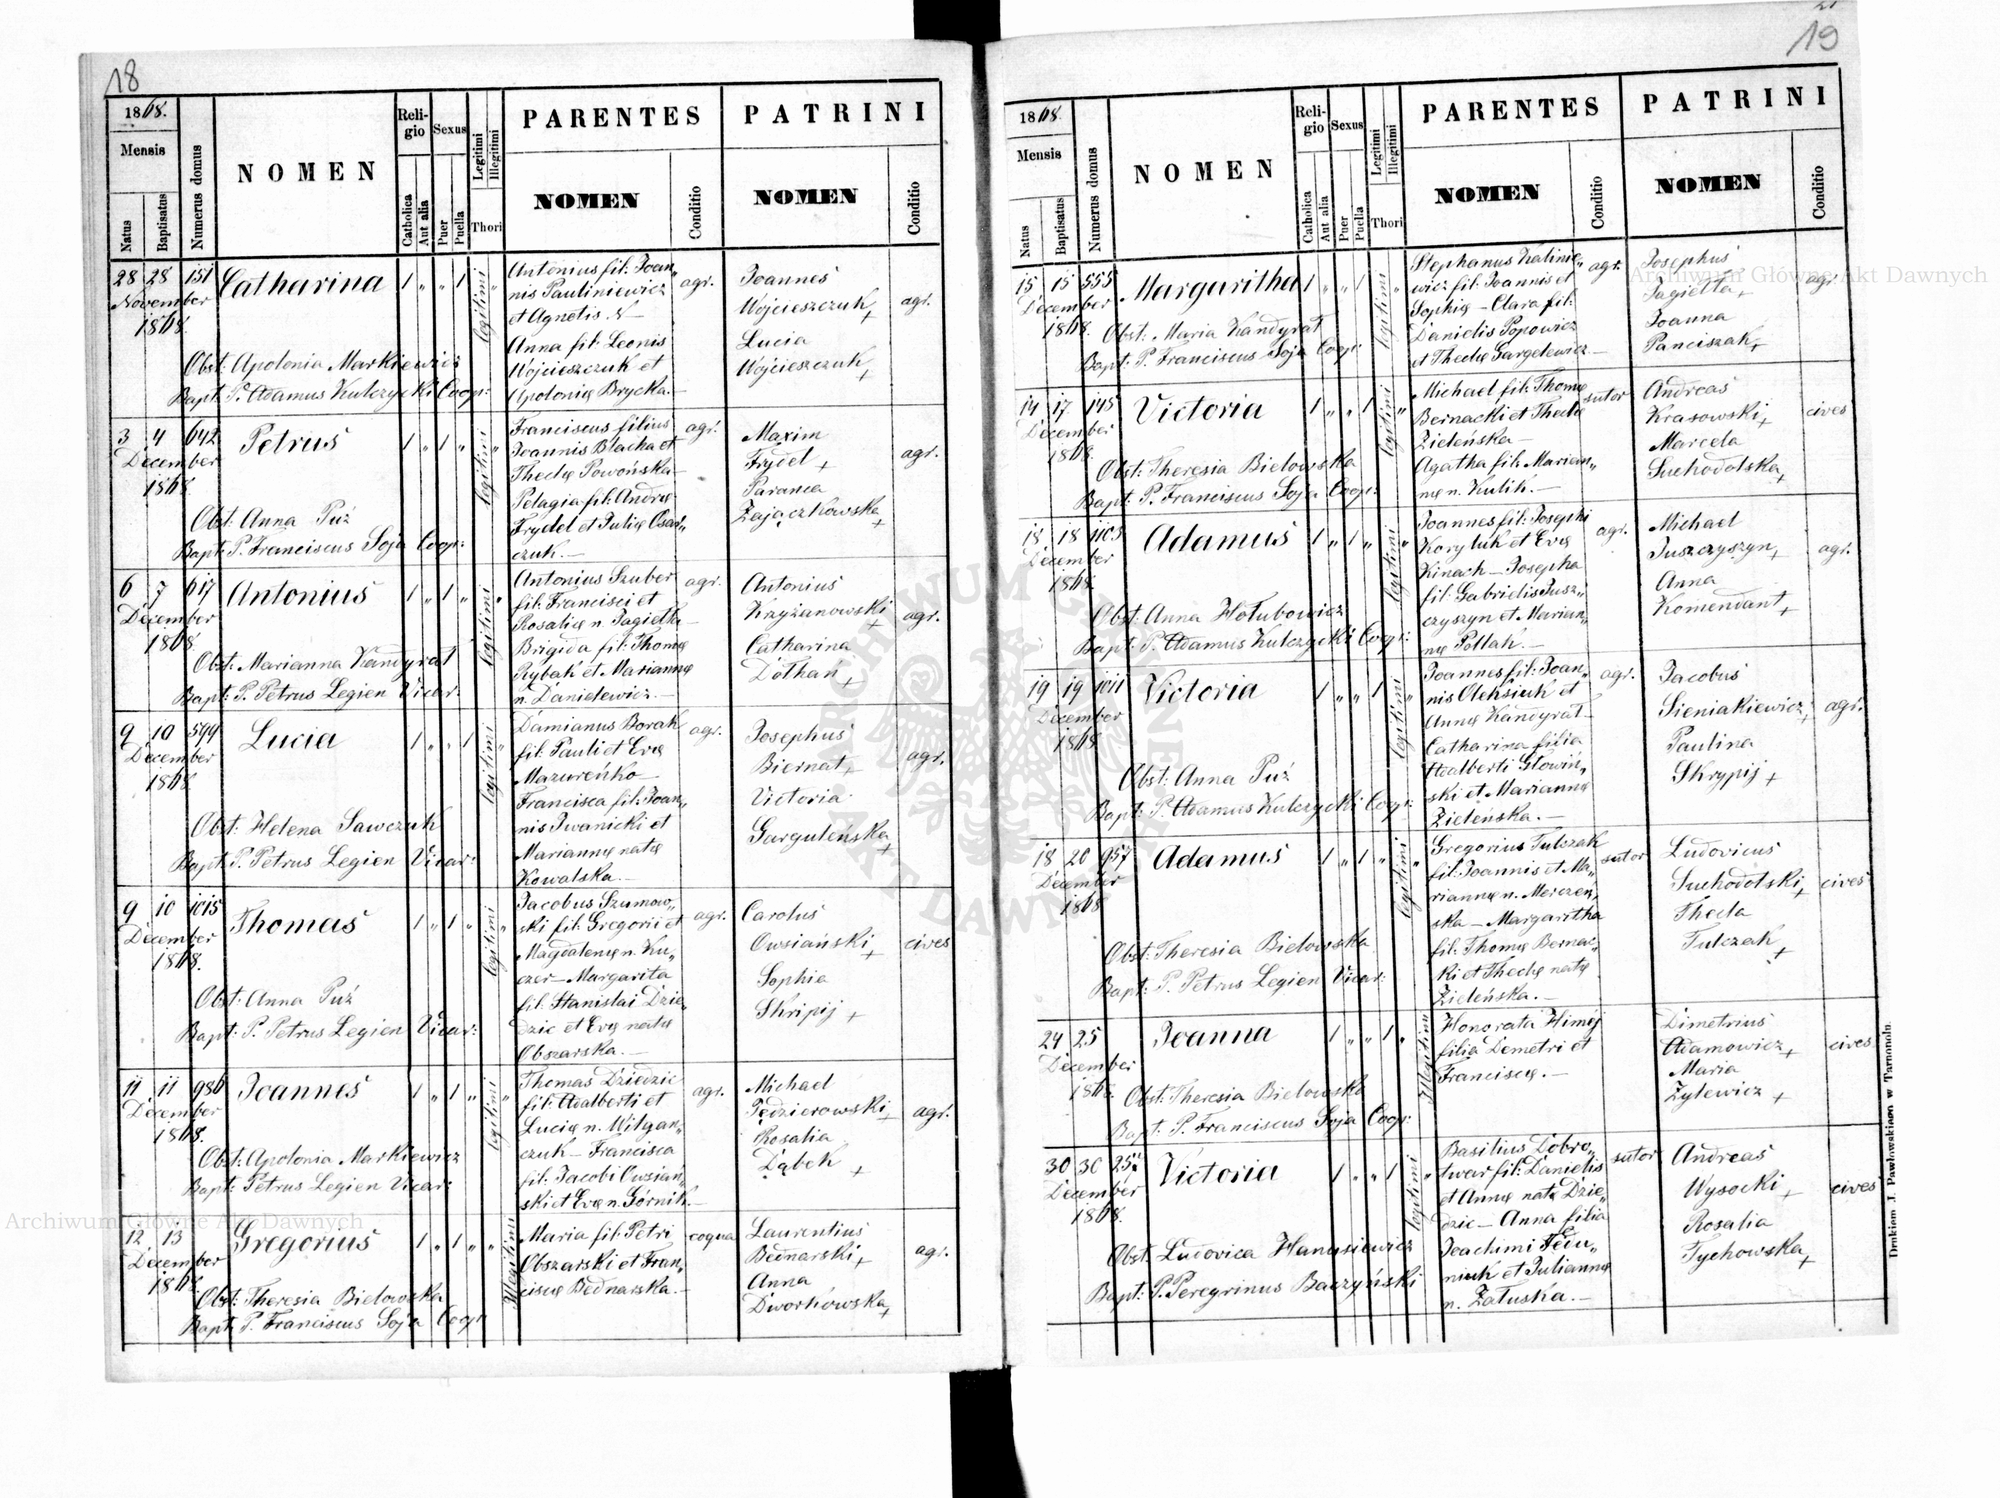 18
1868.
Mensis
Natus
Baptisatus
Numerus domus
NOMEN
Religio
Catholica
Aut alia
Sexus
Puer
Puella
Legitimi
Illegitimi
Thori
PARENTES
NOMEN
Conditio
PATRINI
NOMEN
Conditio
28 28 151 Catharina 1 „ „ 1 legitimi „
November
1868
Antonius fil: Joan„
nis Pauliniewicz
et Agnetis N–
Anna fil: Leonis
Wojcieszczuk et
Apolonię Brycka.–
agr.
Joannes
Wojcieszczuk +
Lucia
Wojcieszczuk +
agr.
Obst: Apolonia Markiewicz
Bapt: P. Adamus Kulczycki Coop:
3 4 642 Petrus 1 „ 1 „ legitimi „
December
1868
Franciscus filius
Joannis Blacha et
Theclę Powońska–
Pelagia fil: Andreę
Frydel et Julię Osad„
czuk.–
agr.
Maxim
Frydel +
Paranca
Zajączkowska +
agr.
Obst: Anna Puź
Bapt: P. Franciscus Soja Coop:
6 7 617 Antonius 1 „ 1 „ legitimi „
December
1868
Antonius Szuber
fil: Francisci et
Rosalię n. Jagiełła–
Brigida fil: Thomę
Rybak et Mariannę
n. Danielewicz.–
agr.
Antonius
Krzyżanowski +
Catharina
Dołhań +
agr.
Obst: Marianna Kandyrał
Bapt: P. Petrus Legien Vicar:
9 10 599 Lucia 1 „ „ 1 legitimi „
December
1868
Damianus Borak
fil: Pauli et Evę
Mazureńko–
Francisca fil: Joan„
nis Iwanicki et
Mariannę natę
Kowalska.–
agr.
Josephus
Biernat +
Victoria
Garguleńska +
agr.
Obst: Helena Sawczuk
Bapt: P. Petrus Legien Vicar:
9 10 1015 Thomas 1 „ 1 „ legitimi „
December
1868.
Jacobus Szumow„
ski fil: Gregorii et
Magdalenę n. Ku„
czer– Margarita
fil: Stanislai Dzie„
dzic et Evę natę
Obszarska.–
agr.
Carolus
Owsiański +
Sophia
Skripij +
cives
Obst: Anna Puź
Bapt: P. Petrus Legien Vicar:
11 11 986 Joannes 1 „ 1 „ legitimi „
December
1868.
Thomas Dziedzic
fil: Adalberti et
Lucię n. Witgan„
czuk– Francisca
fil: Jacobi Owsian„
ski et Evę n. Górnik.–
agr.
Michael
Jędzierowski +
Rosalia
Dąbek +
agr.
Obst: Apolonia Markiewicz
Bapt: Petrus Legien Vicar:
12 13 Gregorius 1 „ 1 „ „ Illegitimi
December
1868
Maria fil: Petri
Obszarski et Fran„
ciscę Bednarska.–
coqua
Laurentius
Bednarski +
Anna
Dworkowska +
agr.
Obst: Theresia Bielowska
Bapt: P. Franciscus Soja Coop:
19
1868.
Mensis
Natus
Baptisatus
Numerus domus
NOMEN
Religio
Catholica
Aut alia
Sexus
Puer
Puella
Legitimi
Illegitimi
Thori
PARENTES
NOMEN
Conditio
PATRINI
NOMEN
Conditio
15 15 555 Margaritha 1 „ „ 1 legitimi „
December
1868.
Stephanus Kalinie„
wicz fil: Joannis et
Sophię – Clara fil:
Danielis Popowicz
et Theclę Gargelewicz–
agr.
Josephus
Jagiełła +
Joanna
Panciszak +
agr.
Obst: Maria Kandyrał
Bapt: P. Franciscus Soja Coop:
14 17 145 Victoria 1 „ „ 1 legitimi „
December
1868.
Michael fil: Thomę
Bernacki et Theclę
Zieleńska–
Agatha fil: Marian„
nę n. Kulik.–
sutor
Andreas
Krasowski +
Marcela
Suchodolska +
cives
Obst: Theresia Bielowska
Bapt: P. Franciscus Soja Coop:
18 18 1103 Adamus 1 „ 1 „ legitimi „
December
1868.
Joannes fil: Josephi
Koryluk et Evę
Kinach– Josepha
fil: Gabrielis Jusz„
czyszyn et Marian„
nę Pollak.–
agr.
Michael
Juszczyszyn +
Anna
Komendant +
agr.
Obst: Anna Hołubowicz
Bapt: P. Adamus Kulczycki Coop:
19 19 1011 Victoria 1 „ „ 1 legitimi „
December
1868
Joannes fil: Joan„
nis Oleksiuk et
Annę Kandyrał–
Catharina filia
Adalberti Głowiń„
ski et Mariannę
Zieleńska.–
agr.
Jacobus
Sieniakiewicz +
Paulina
Skrypij +
agr.
Obst: Anna Puź
Bapt: P. Adamus Kulczycki Coop:
18 20 957 Adamus 1 „ 1 „ legitimi „
December
1868
Gregorius Tulczak
fil: Joannis et Ma„
riannę n. Merczeń„
ska– Margaritha
fil: Thomę Bernac„
ki et Theclę natę
Zieleńska.–
sutor
Ludovicus
Suchodolski +
Thecla
Tulczak +
cives
Obst: Theresia Bielowska
Bapt: P. Petrus Legien Vicar:
24 25 Joanna 1 „ „ 1 „ Illegitimi
December
1868.
Honorata Himej
filia Demetri et
Franciscę.–
Dimetrius
Adamowicz +
Maria
Zylewicz +
cives
Obst: Theresia Bielowska
Bapt: P. Franciscus Soja Coop:
30 30 257 Victoria 1 „ „ 1 legitimi „
December
1868.
Basilius Dobro„
twar fil: Danielis
et Annę natę Dzie„
dzic– Anna filia
Joachimi Fedu„
niuk et Juliannę
n. Załuska.–
sutor
Andreas
Wysocki +
Rosalia
Tychowska +
cives
Obst: Ludovica Hanusiewicz
Bapt: P. Peregrinus Baczyński
Drukiem J. Pawłowskiego w Tarnopolu.
Archiwum Główne Akt Dawnych
Archiwum Główne Akt Dawnych
ARCHIWUM GŁÓWNE AKT DAWNYCH